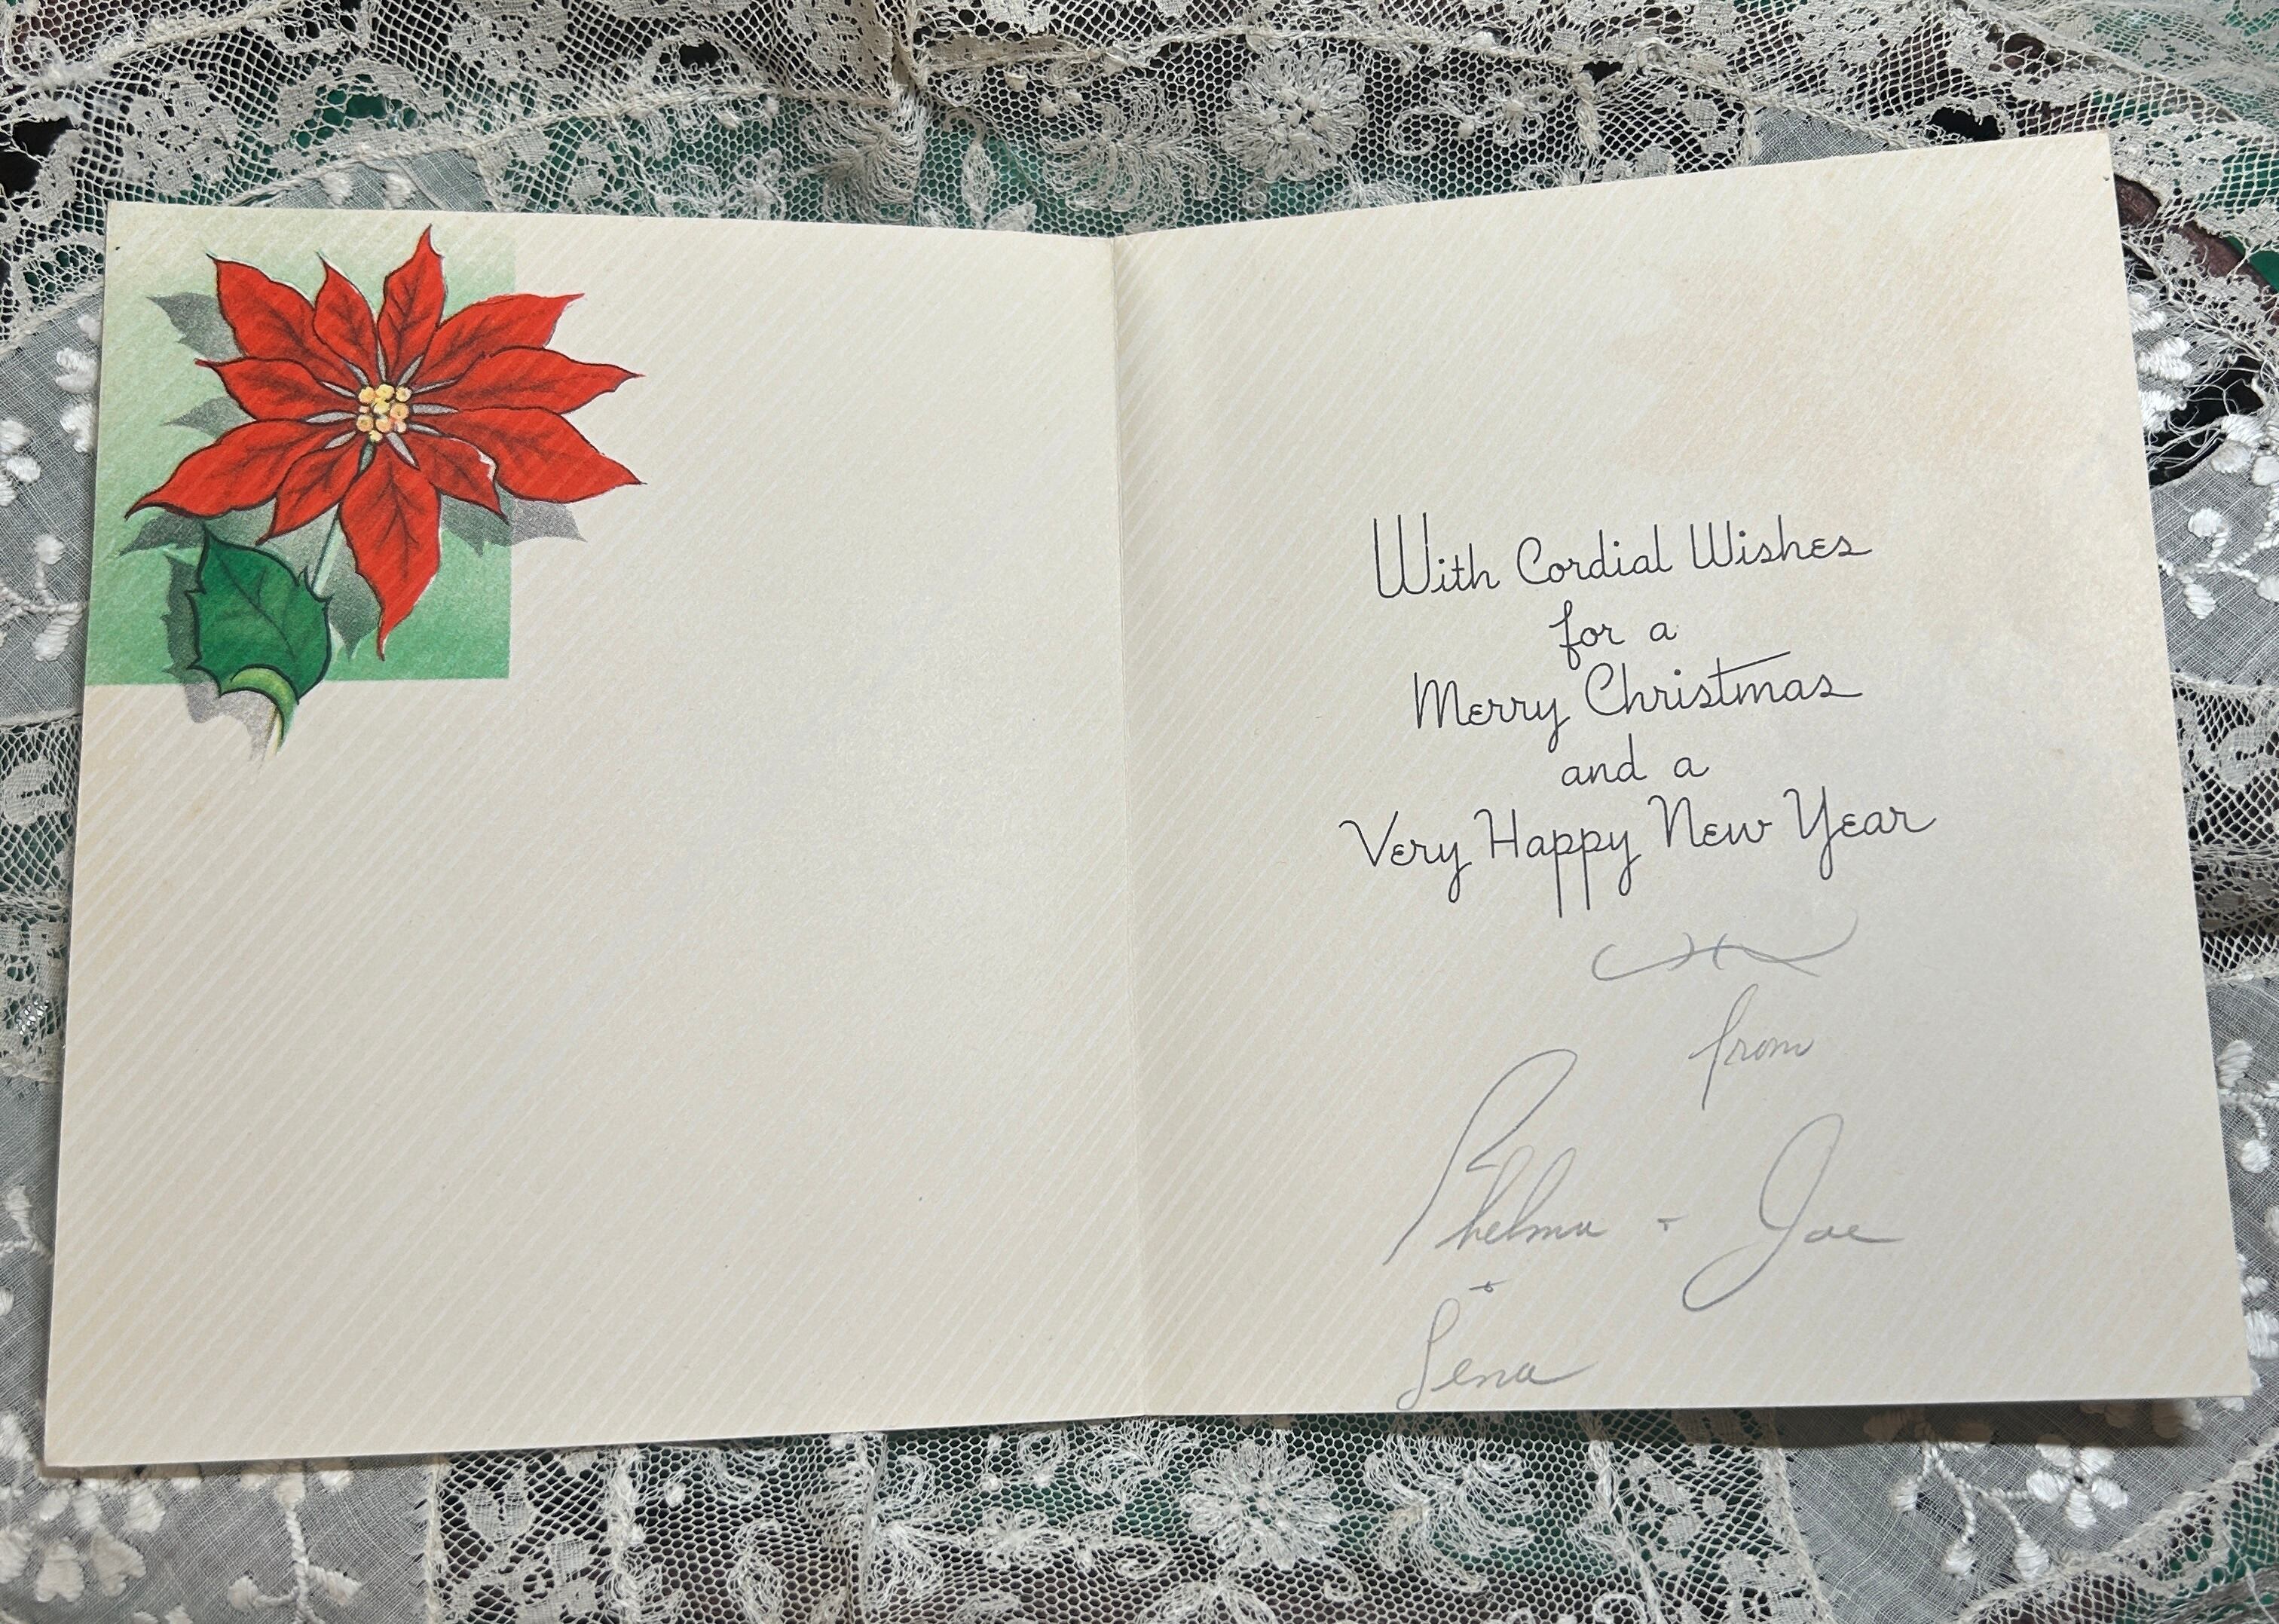 With Cordial Wishes
for a
Merry Christmas
and a
Very Happy New Year
from
Thelma + Joe
+
Lena